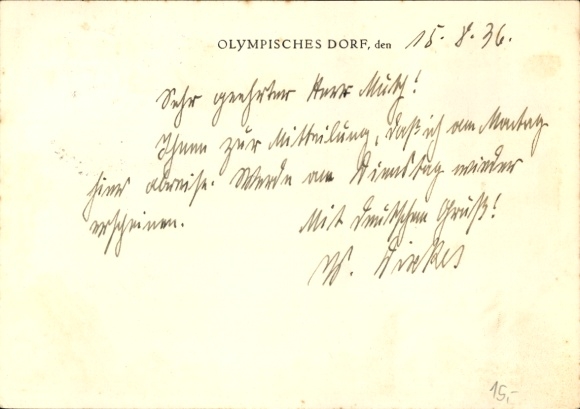 OLYMPISCHES DORF, den 15.8.36.
Sehr geehrter Herr Mutz!
Ihnen zur Mitteilung, daß ich am Montag
hier abreise. Werde am Dienstag wieder
erscheinen. Mit deutschem Gruß!
W. Dirkes
15,-